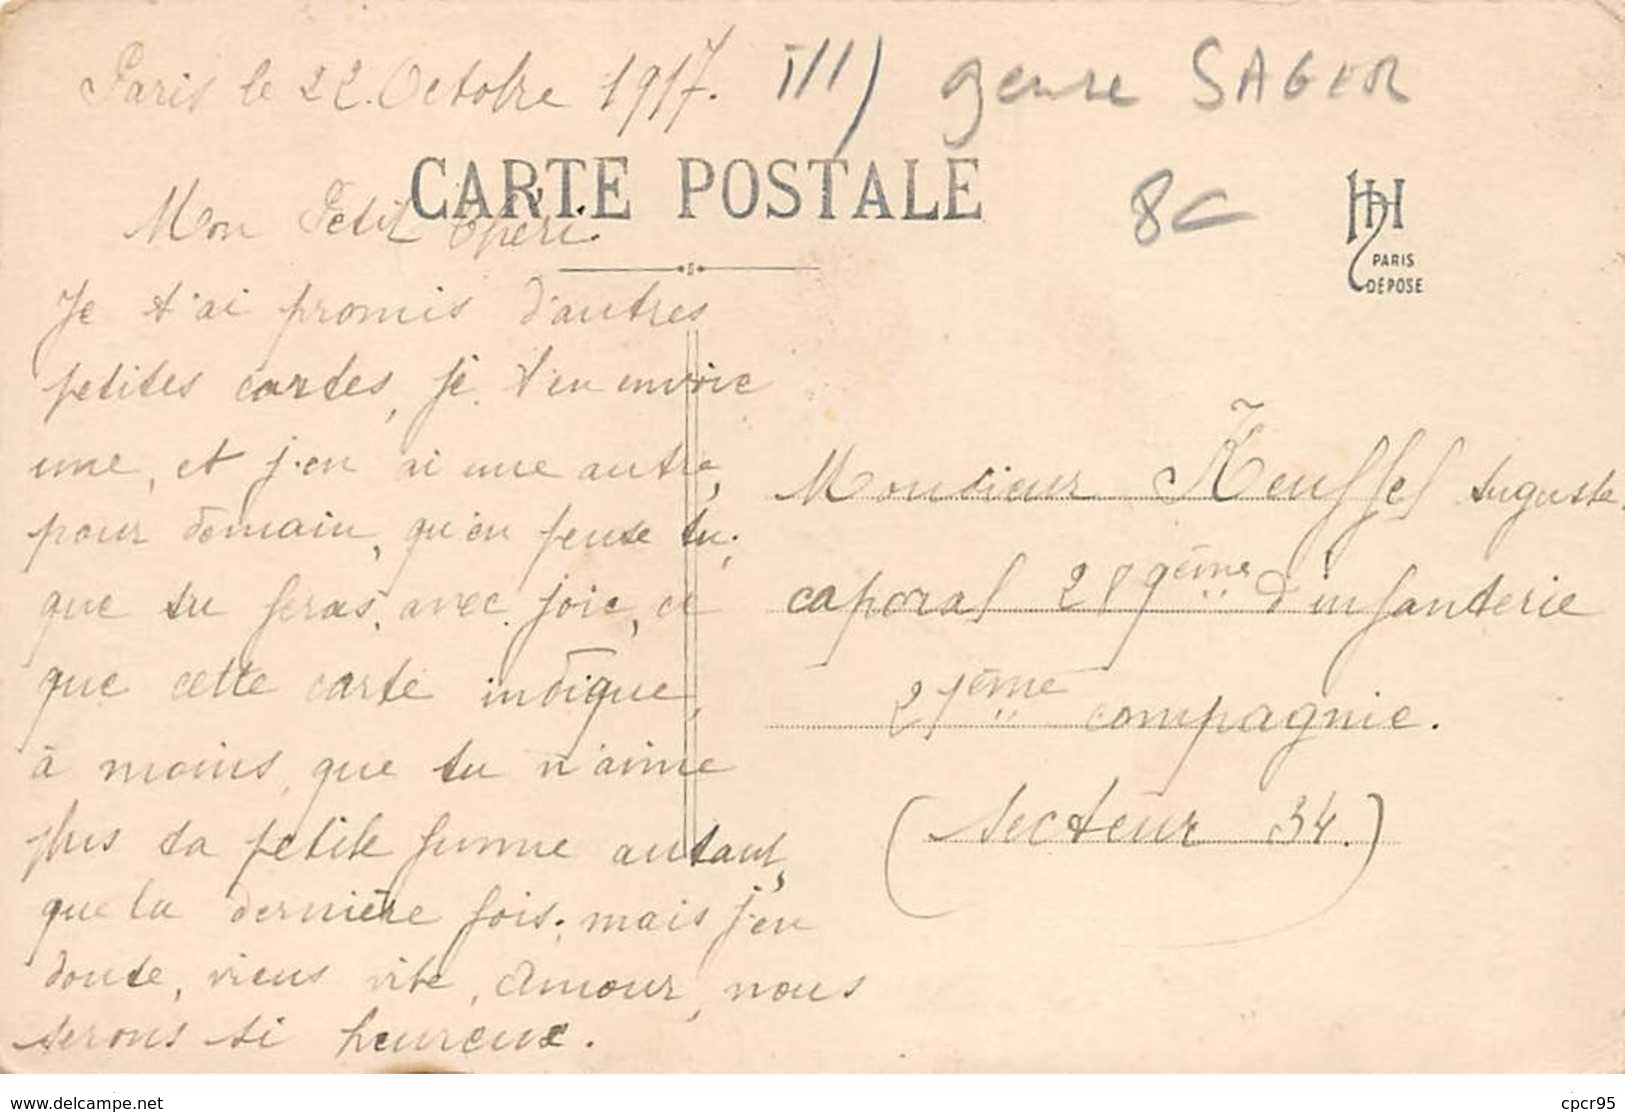 Paris le 22 Octobre 1917. Ill) genre SAGER
CARTE POSTALE
8€
HH
PARIS
DÉPOSÉ
Mon Petit Chéri.
Je t'ai promis d'autres
petites cartes, je t'en envoie
une, et j'en ai une autre,
pour demain, qu'en pense tu,
que tu feras, avec joie, ce
que cette carte indique,
à moins, que tu n'aime
plus ta petite femme autant,
que la dernière fois, mais j'en
doute, viens vite, Amour, nous
serons si heureux.
Monsieur Keuffel Auguste.
caporal 289ème d'infanterie
21ème compagnie.
(Secteur 34.)
www.delcampe.net
cpcr95